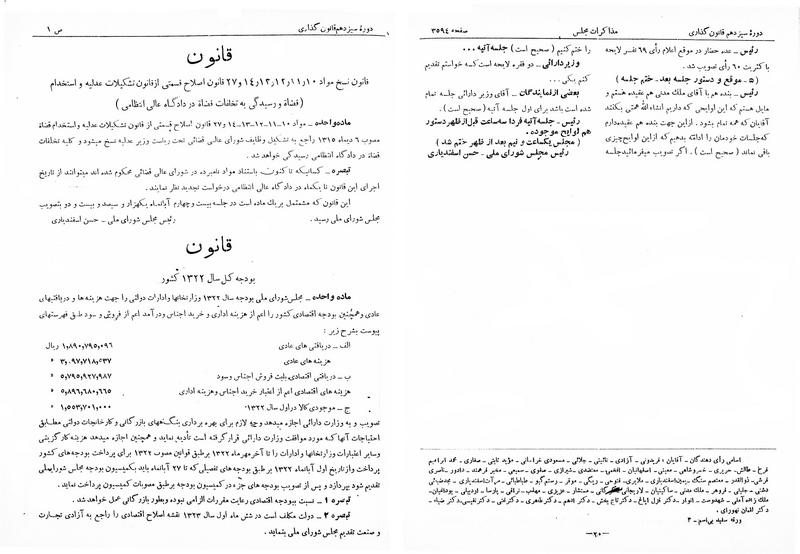 دورهٔ سیزدهم قانون گذاری
مذاکرات مجلس
صفحه ۳۵۹۴
رئیس – عده حضار در موقع اعلام رأی ۶۹ نفر لایحه
با کثریت ۶۰ رأی تصویب شد.
(۵ – موقع و دستور جلسه بعد – ختم جلسه)
رئیس – بنده هم با آقای ملک مدنی هم عقیده هستم و
مایل هستم که این لوایحی که داریم انشاءالله همتی بکنند
آقایان که همه تمام بشود. از این جهت بنده هم عقیده دارم
که جلسات خودمان را ادامه بدهیم که از این لوایح چیزی
باقی نماند (صحیح است). اگر تصویب میفرمائید جلسه
را ختم کنیم (صحیح است) جلسه آتیه...
وزیر دارائی – دو فقره لایحه است که میخواستم تقدیم
کنم یکی...
بعضی از نمایندگان – آقای وزیر دارائی جلسه تمام
شده است باشد برای اول جلسه آتیه (صحیح است).
رئیس – جلسه آتیه فردا سه ساعت قبل از ظهر دستور
هم لوایح موجوده.
(مجلس یکساعت و نیم بعد از ظهر ختم شد)
رئیس مجلس شورای ملی – حسن اسفندیاری
اسامی رأی دهندگان – آقایان: فریدونی – آزادی – نائینی – جلائی – مسعودی خراسانی – مؤید ثابتی – صفاری – محمد ابراهیم
ورقه سفید بی‌اسم – ۳
–۲۰–
دورهٔ سیزدهم قانون گذاری
ص ۱
قانون
قانون نسخ مواد ۱۰ و ۱۱ و ۱۲ و ۱۳ و ۱۴ و ۲۷ قانون اصلاح قسمتی از قانون تشکیلات عدلیه و استخدام
(قضاة و رسیدگی به تخلفات قضاة در دادگاه عالی انتظامی)
ماده واحده – مواد ۱۰–۱۱–۱۲–۱۳–۱۴ و ۲۷ قانون اصلاح قسمتی از قانون تشکیلات عدلیه و استخدام قضاة
مصوب ۶ دیماه ۱۳۱۵ راجع به تشکیل وظایف شورای عالی قضائی تحت ریاست وزیر عدلیه نسخ میشود و کلیه تخلفات
قضاة در دادگاه انتظامی رسیدگی خواهد شد.
تبصره – کسانیکه تا کنون باستناد مواد نامبرده در شورای عالی قضائی محکوم شده اند میتوانند از تاریخ
اجرای این قانون تا یکماه در دادگاه عالی انتظامی درخواست تجدید نظر نمایند.
این قانون که مشتمل بر یک ماده است در جلسه بیست و چهارم آبانماه یکهزار و سیصد و بیست و دو بتصویب
مجلس شورای ملی رسید.
رئیس مجلس شورای ملی – حسن اسفندیاری
قانون
بودجه کل سال ۱۳۲۲ کشور
ماده واحده – مجلس شورای ملی بودجه سال ۱۳۲۲ وزارتخانها و ادارات دولتی را جهت هزینه ها و دریافتیهای
عادی و همچنین بودجه اقتصادی کشور را اعم از هزینه اداری و خرید اجناس و درآمد اعم از فروش و سود طبق فهرستهای
پیوست بشرح زیر:
الف – دریافتی های عادی ۱,۸۹۰,۷۹۵,۰۹۶ ریال
هزینه های عادی ۳,۰۹۷,۷۱۸,۵۳۷ »
ب – دریافتی اقتصادی بابت فروش اجناس و سود ۵,۷۹۵,۹۲۷,۹۸۷ »
هزینه های اقتصادی اعم از اعتبار خرید اجناس و هزینه اداری ۵,۸۹۶,۶۸۰,۶۶۵ »
ج – موجودی کالا در اول سال ۱۳۲۲ ۱,۵۵۳,۷۰۱,۰۰۰ »
تصویب و به وزارت دارائی اجازه میدهد وجه لازم برای بهره برداری بنگاههای بازرگانی و کارخانجات دولتی مطابق
احتیاجات آنها که مورد موافقت وزارت دارائی قرار گرفته است تأدیه نماید و همچنین اجازه میدهد هزینه کارگزینی
وسایر اعتبارات وزارتخانها و ادارات را تا آخر مهرماه ۱۳۲۲ بر طبق قوانین مصوب ۱۳۲۲ برای پرداخت بودجه‌های کشور
پرداخت و از تاریخ اول آبانماه ۱۳۲۲ بر طبق بودجه های تفصیلی که تا ۲۷ آبانماه باید بکمیسیون بودجه مجلس شورایملی
تقدیم شود بپردازد و پس از تصویب بودجه های جزء در کمیسیون بودجه بر طبق مصوبات کمیسیون پرداخت نماید.
تبصره ۱ – نسبت بودجه اقتصادی رعایت مقررات الزامی نبوده و بطور بازرگانی عمل خواهد شد.
تبصره ۲ – دولت مکلف است در شش ماه اول سال ۱۳۲۳ نقشه اصلاح اقتصادی را راجع به آزادی تجارت
و صنعت تقدیم مجلس شورای ملی بنماید.